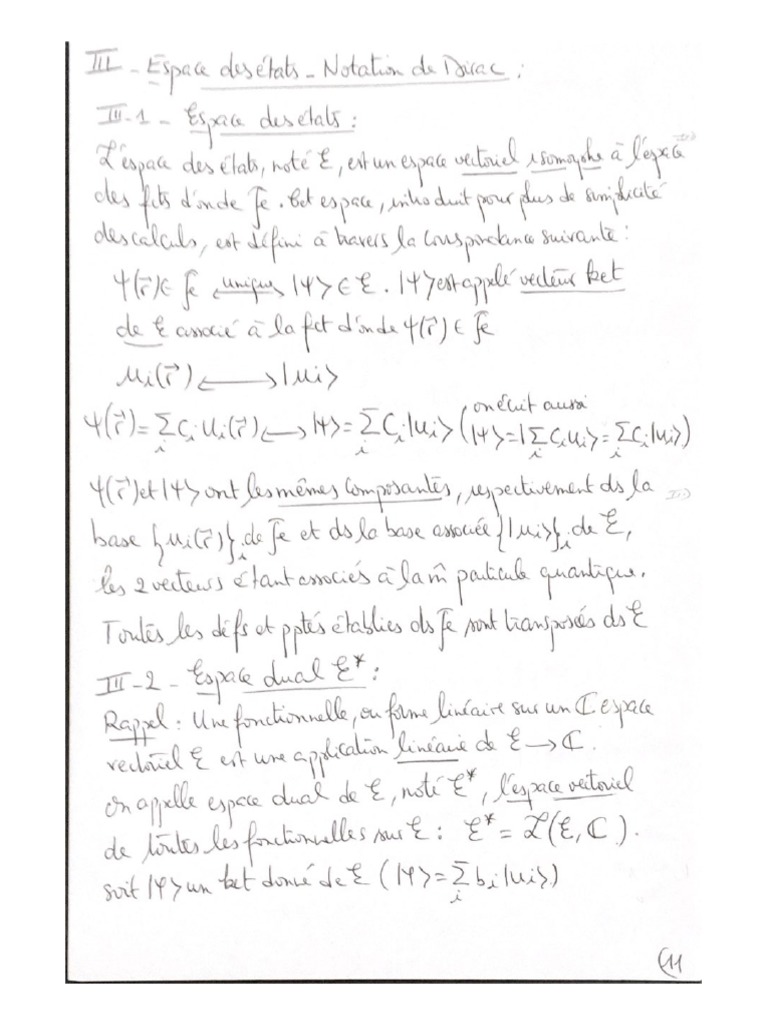 III - Espace des états - Notation de Dirac :
III-1 - Espace des états :
L'espace des états, noté ℰ, est un espace vectoriel isomorphe à l'espace
des fcts d'onde Fe. Cet espace, introduit pour plus de simplicité
des calculs, est défini à travers la correspondance suivante :
Ψ(r⃗) ∈ Fe ⟷ unique |Ψ> ∈ ℰ. |Ψ> est appelé vecteur ket
de ℰ associé à la fct d'onde Ψ(r⃗) ∈ Fe
ui(r⃗) ⟷ |ui>
Ψ(r⃗) = Σi Ci ui(r⃗) ⟷ |Ψ> = Σi Ci |ui> (on écrit aussi |Ψ> = |Σi Ci ui> = Σi Ci |ui>)
Ψ(r⃗) et |Ψ> ont les mêmes composantes, respectivement ds la
base {ui(r⃗)}i de Fe et ds la base associée {|ui>}i de ℰ,
les 2 vecteurs étant associés à la m̂ particule quantique.
Toutes les défs et pptés établies ds Fe sont transposées ds ℰ
III-2 - Espace dual ℰ* :
Rappel : Une fonctionnelle, ou forme linéaire sur un ℂ espace
vectoriel ℰ est une application linéaire de ℰ → ℂ.
On appelle espace dual de ℰ, noté ℰ*, l'espace vectoriel
de toutes les fonctionnelles sur ℰ : ℰ* = ℒ(ℰ, ℂ).
soit |φ> un ket donné de ℰ (|φ> = Σi bi |ui>)
(11